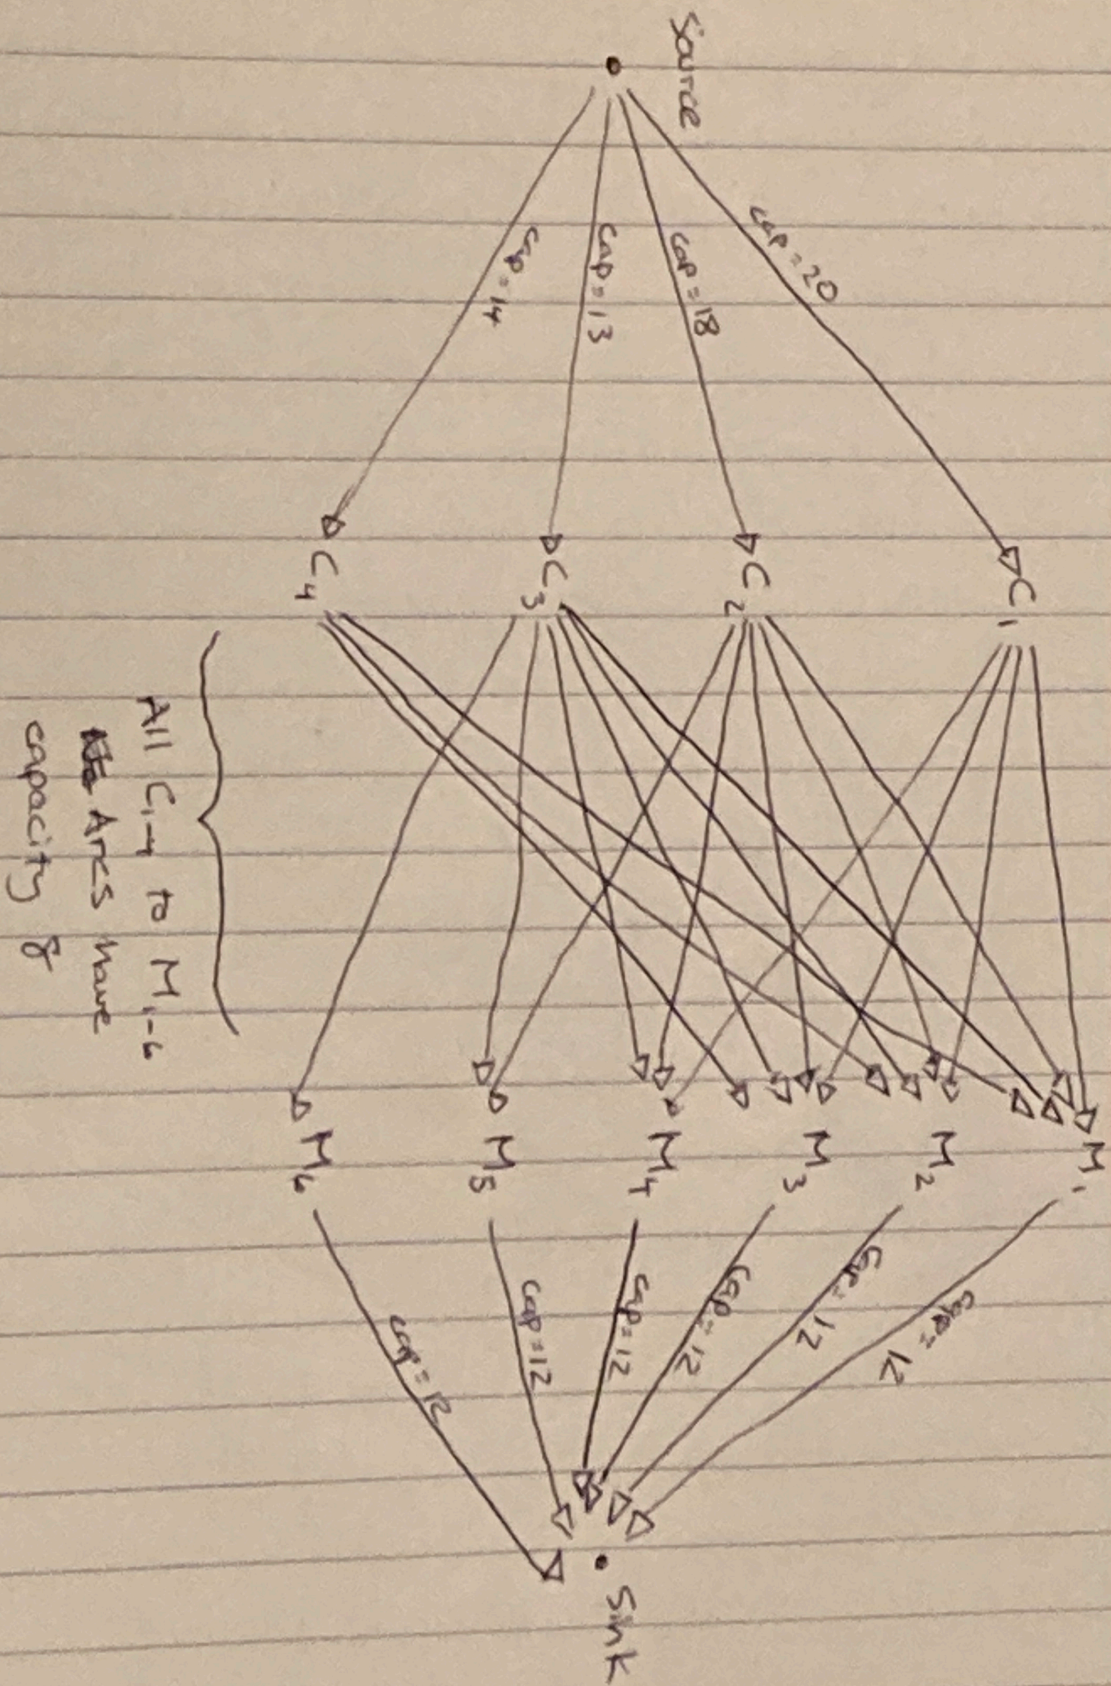 Source
cap = 20
cap = 18
cap = 13
cap = 14
C1
C2
C3
C4
All C1-4 to M1-6
Arcs have
capacity 8
M1
M2
M3
M4
M5
M6
cap = 12
cap = 12
cap = 12
cap = 12
cap = 12
cap = 12
Sink